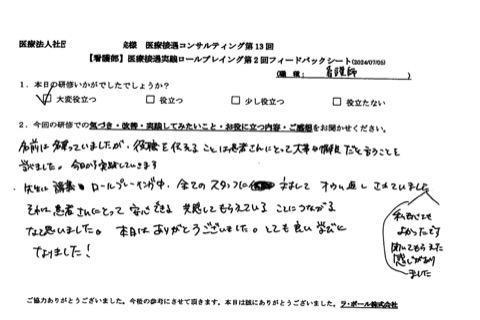 医療法人社 様 医療接遇コンサルティング第13回
【看護部】医療接遇実践ロールプレイング第2回フィードバックシート(2024/07/05)
(職種: 看護師 )
1．本日の研修いかがでしたでしょうか？
☑ 大変役立つ □ 役立つ □ 少し役立つ □ 役立たない
2．今回の研修での気づき・改善・実践してみたいこと・お役に立つ内容・ご感想をお聞かせください。
名前は名乗っていましたが、役職を伝えることは患者さんにとって大事な情報だと言うことを
学びました。今日から実践していきます
・先生は講義中ロールプレーイング中、全てのスタッフに まして オウム返し されていました
それは患者さんにとって安心できる 共感してもらえている ことにつながる
なと思いました。本日はありがとうございました。とても良い学びに
なりました！
よかったです
聞いてもらえた
感じがあり
ました
ご協力ありがとうございました。今後の参考にさせて頂きます。本日は誠にありがとうございました。ラ・ポール株式会社